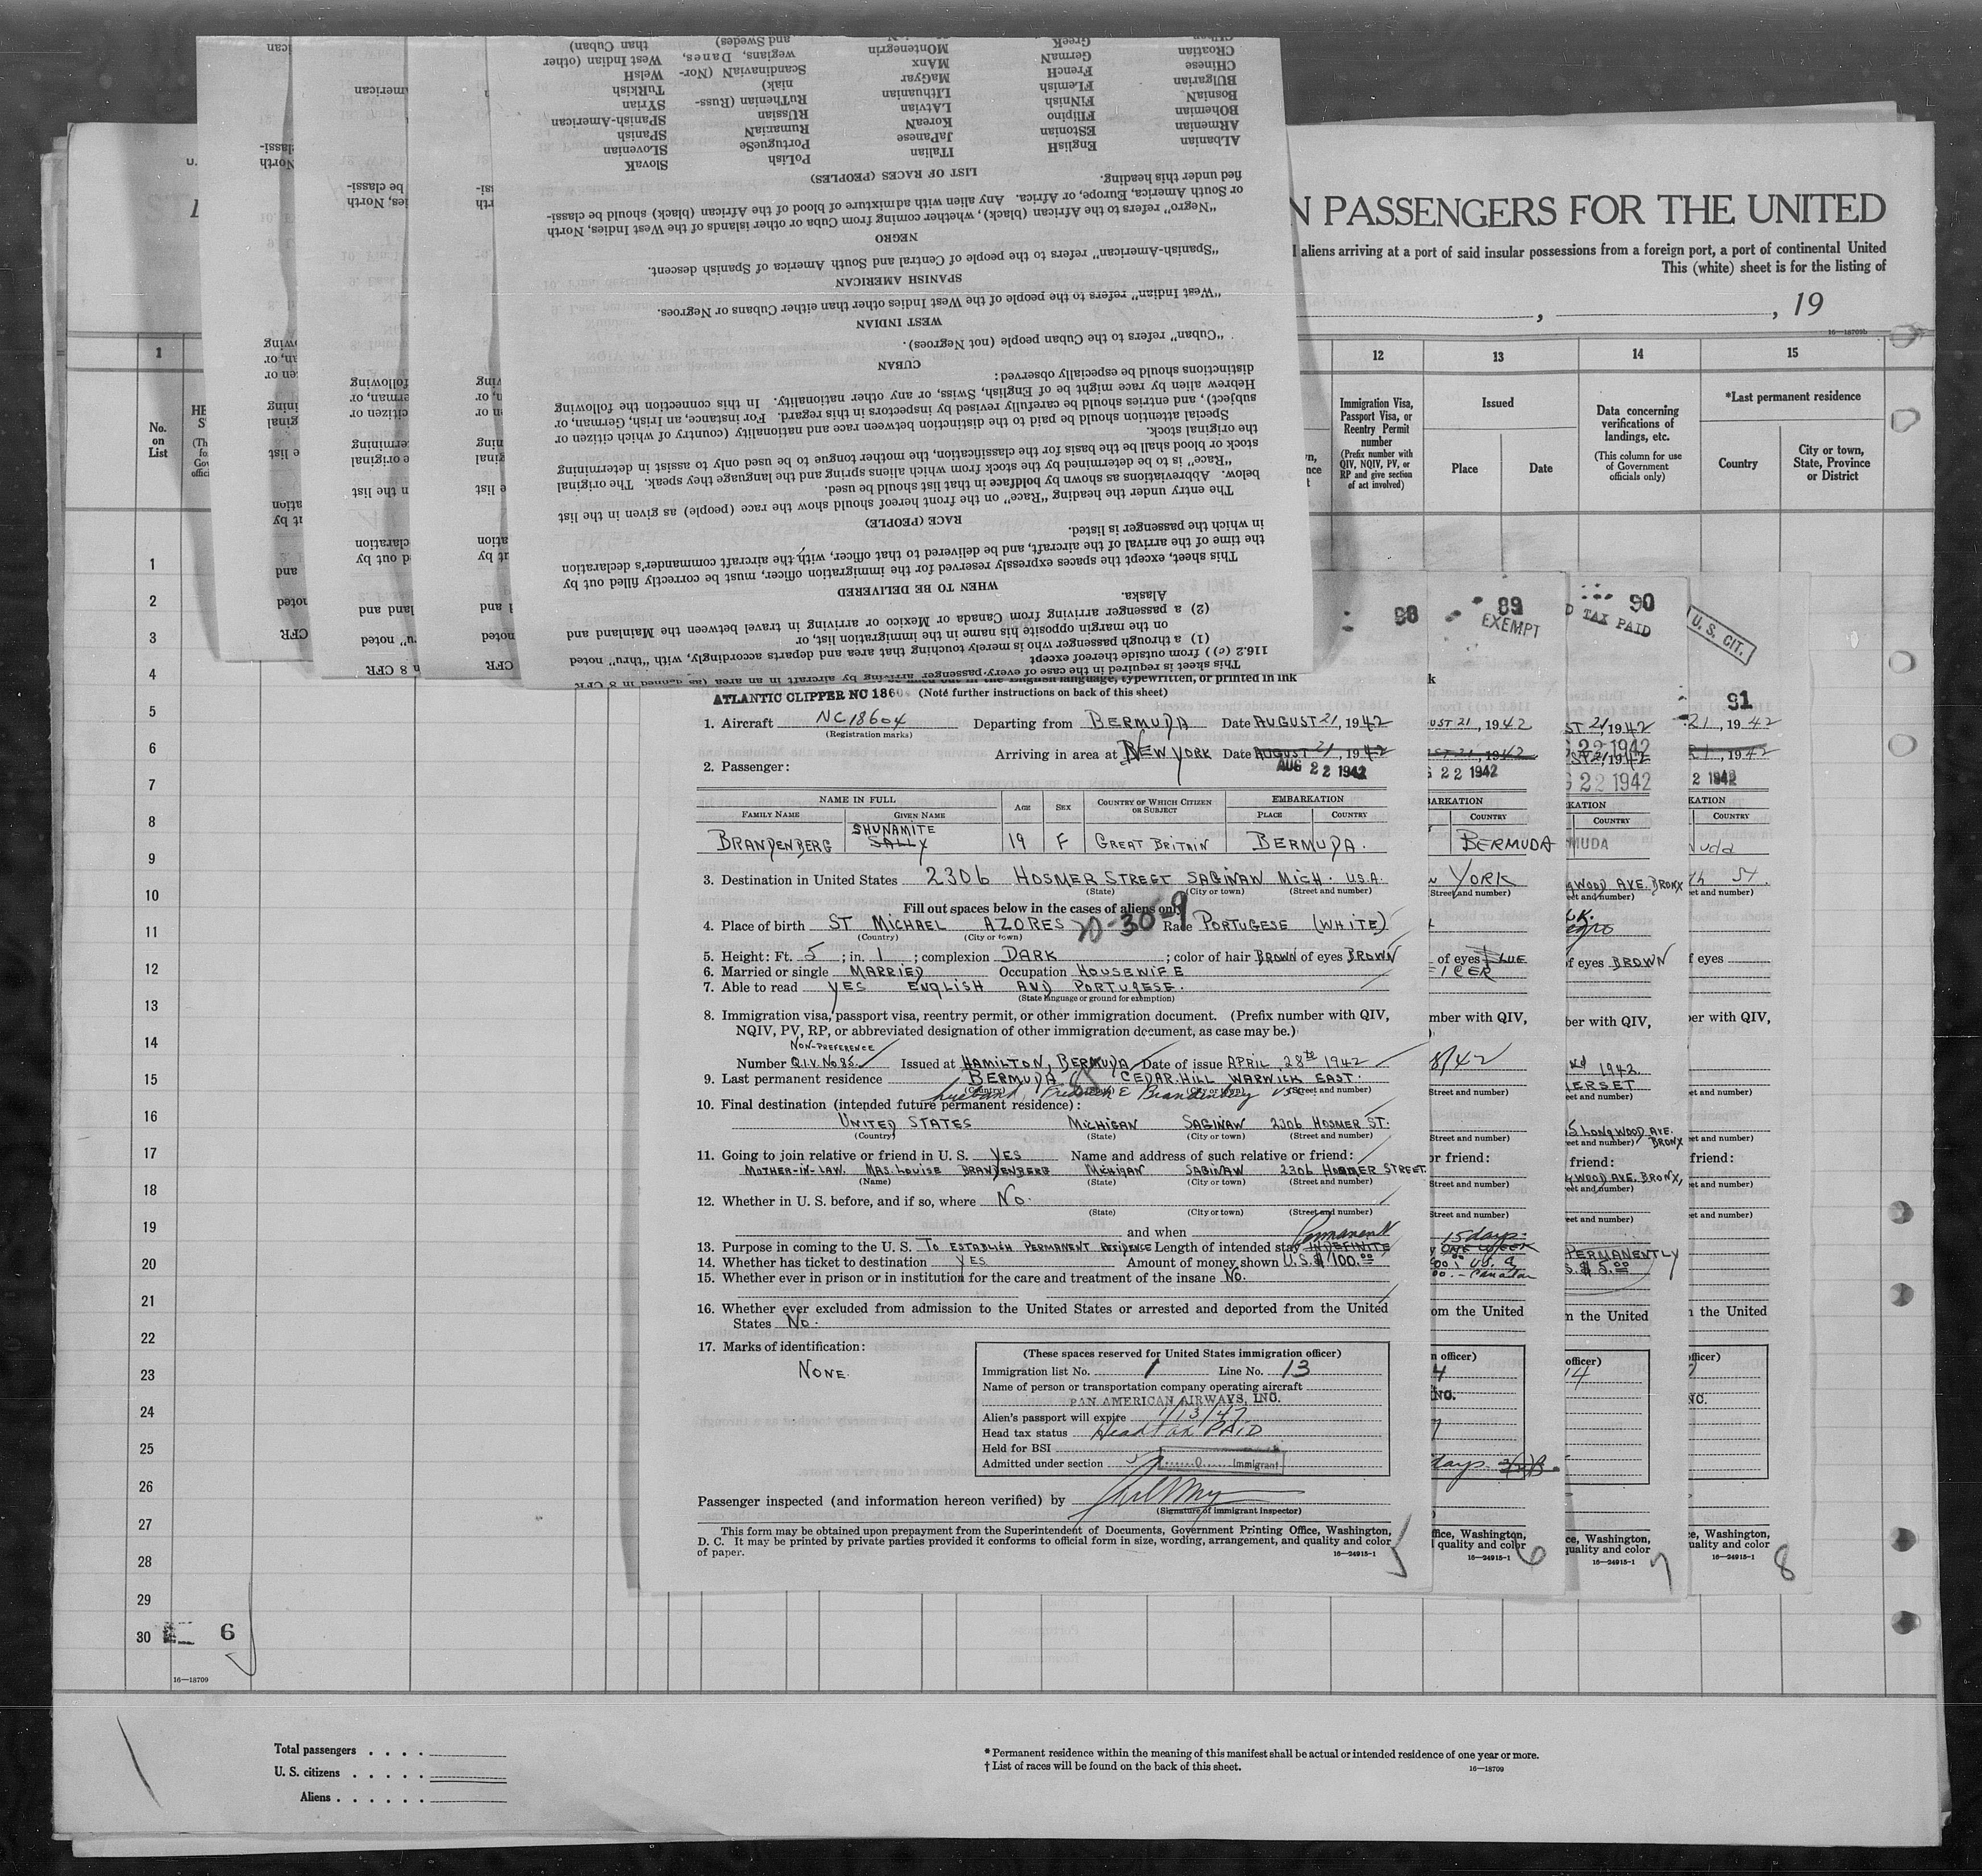 N PASSENGERS FOR THE UNITED
l aliens arriving at a port of said insular possessions from a foreign port, a port of continental United
This (white) sheet is for the listing of
, 19
16—18709b
1
12
13
14
15
No.
on
List
Immigration Visa,
Passport Visa, or
Reentry Permit
number
(Prefix number with
QIV, NQIV, PV, or
RP and give section
of act involved)
Issued
Place
Date
Data concerning
verifications of
landings, etc.
(This column for use
of Government
officials only)
*Last permanent residence
Country
City or town,
State, Province
or District
This sheet is required in the case of every passenger arriving by aircraft in an area (as defined in 8 CFR
116.2 (c)) from outside thereof except
(1) a through passenger who is merely touching that area and departs accordingly, with "thru" noted
on the margin opposite his name in the immigration list, or
(2) a passenger arriving from Canada or Mexico or arriving in travel between the Mainland and
Alaska.
WHEN TO BE DELIVERED
This sheet, except the spaces expressly reserved for the immigration officer, must be correctly filled out by
the time of the arrival of the aircraft, and be delivered to that officer, with the aircraft commander's declaration
in which the passenger is listed.
RACE (PEOPLE)
The entry under the heading "Race" on the front hereof should show the race (people) as given in the list
below. Abbreviations as shown by boldface in that list should be used.
"Race" is to be determined by the stock from which aliens spring and the language they speak. The original
stock or blood shall be the basis for the classification, the mother tongue to be used only to assist in determining
the original stock.
Special attention should be paid to the distinction between race and nationality (country of which citizen or
subject), and entries should be carefully revised by inspectors in this regard. For instance, an Irish, German, or
Hebrew alien by race might be of English, Swiss, or any other nationality. In this connection the following
distinctions should be especially observed:
CUBAN
"Cuban" refers to the Cuban people (not Negroes).
WEST INDIAN
"West Indian" refers to the people of the West Indies other than either Cubans or Negroes.
SPANISH AMERICAN
"Spanish-American" refers to the people of Central and South America of Spanish descent.
NEGRO
"Negro" refers to the African (black), whether coming from Cuba or other islands of the West Indies, North
or South America, Europe, or Africa. Any alien with admixture of blood of the African (black) should be classi-
fied under this heading.
LIST OF RACES (PEOPLES)
ALbanian EnglisH ITalian PoLish SlovaK
ARmenian EStonian JaPanese PortugueSe SLovenian
BOhemian Filipino KoreaN RumaniaN SPanish
BosniaN FiNNish LAtvian RUssian SPanish-American
BUlgarian FLemish LIthuanian RuThenian (Russ- SYrian
CHinese FrencH MaGyar niak) TuRkish
CRoatian GermaN MAnx ScandinaviaN (Nor- WelsH
GreeK MOntenegrin wegians, Danes, West Indian (other
and Swedes) than Cuban)
98
89
EXEMPT
90
TAX PAID
U. S. CIT.
91
ATLANTIC CLIPPER NC 1860 (Note further instructions on back of this sheet)
1. Aircraft NC18604 Departing from BERMUDA Date AUGUST 21, 1942
(Registration marks)
Arriving in area at NEW YORK Date AUGUST 21, 1942
AUG 22 1942
2. Passenger:
NAME IN FULL AGE SEX COUNTRY OF WHICH CITIZEN OR SUBJECT EMBARKATION
FAMILY NAME GIVEN NAME PLACE COUNTRY
SHUNAMITE
BRANDENBERG SALLY 19 F GREAT BRITAIN BERMUDA.
3. Destination in United States 2306 HOSMER STREET SAGINAW MICH. U.S.A.
(State) (City or town) (Street and number)
Fill out spaces below in the cases of aliens only
4. Place of birth ST MICHAEL AZORES Race PORTUGESE (WHITE)
(Country) (City or town)
5. Height: Ft. 5 ; in. 1 ; complexion DARK ; color of hair BROWN of eyes BROWN
6. Married or single MARRIED Occupation HOUSEWIFE
7. Able to read YES ENGLISH AND PORTUGESE.
(State language or ground for exemption)
8. Immigration visa, passport visa, reentry permit, or other immigration document. (Prefix number with QIV,
NQIV, PV, RP, or abbreviated designation of other immigration document, as case may be.)
NON-PREFERENCE
Number Q.I.V. No 85. Issued at HAMILTON, BERMUDA Date of issue APRIL 28th 1942
9. Last permanent residence BERMUDA CEDAR HILL WARWICK EAST.
(Country) (City or town) (Street and number)
husband, Frederick E Brandenberg USC
10. Final destination (intended future permanent residence):
UNITED STATES MICHIGAN SAGINAW 2306 HOSMER ST.
(Country) (State) (City or town) (Street and number)
11. Going to join relative or friend in U. S. YES Name and address of such relative or friend:
MOTHER-IN-LAW. MRS. LOUISE BRANDENBERG MICHIGAN SAGINAW 2306 HOSMER STREET.
(Name) (State) (City or town) (Street and number)
12. Whether in U. S. before, and if so, where NO.
(State) (City or town) (Street and number)
and when
Permanent
13. Purpose in coming to the U. S. TO ESTABLISH PERMANENT RESIDENCE Length of intended stay INDEFINITE
14. Whether has ticket to destination YES Amount of money shown U.S. $ 100.00
15. Whether ever in prison or in institution for the care and treatment of the insane NO.
16. Whether ever excluded from admission to the United States or arrested and deported from the United
States NO.
17. Marks of identification:
NONE.
(These spaces reserved for United States immigration officer)
Immigration list No. 1 Line No. 13
Name of person or transportation company operating aircraft
PAN AMERICAN AIRWAYS, INC.
Alien's passport will expire 1/13/47
Head tax status Head tax PAID
Held for BSI
Admitted under section Immigrant
Passenger inspected (and information hereon verified) by
(Signature of immigrant inspector)
This form may be obtained upon prepayment from the Superintendent of Documents, Government Printing Office, Washington,
D. C. It may be printed by private parties provided it conforms to official form in size, wording, arrangement, and quality and color
of paper. 16—24915-1
5
6
7
8
1
2
3
4
5
6
7
8
9
10
11
12
13
14
15
16
17
18
19
20
21
22
23
24
25
26
27
28
29
30
6
16—18709
Total passengers . . . .
U. S. citizens . . . . .
Aliens . . . . . .
* Permanent residence within the meaning of this manifest shall be actual or intended residence of one year or more.
† List of races will be found on the back of this sheet. 16—18709